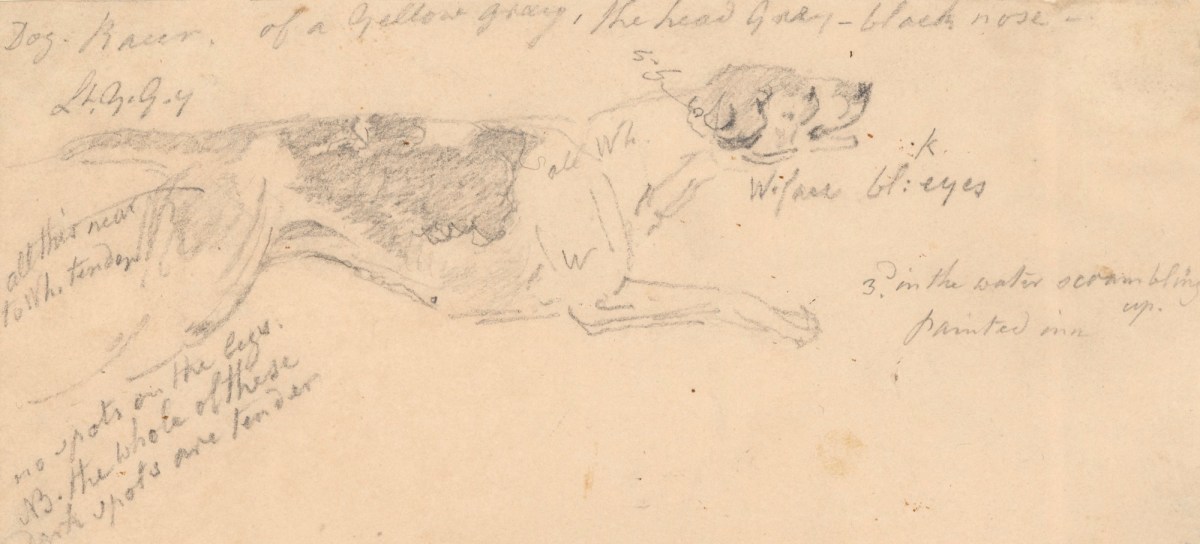 Dog. Racer. of a Yellow gray, the head Gray - black nose -
Lt. Y. G-y
all Wh.
W. face bl: eyes
k.
W
all this near
to Wh. tender
3d. in the water scrambling
up.
painted in a
no spots on the legs.
NB. the whole of these
Dark spots are tender